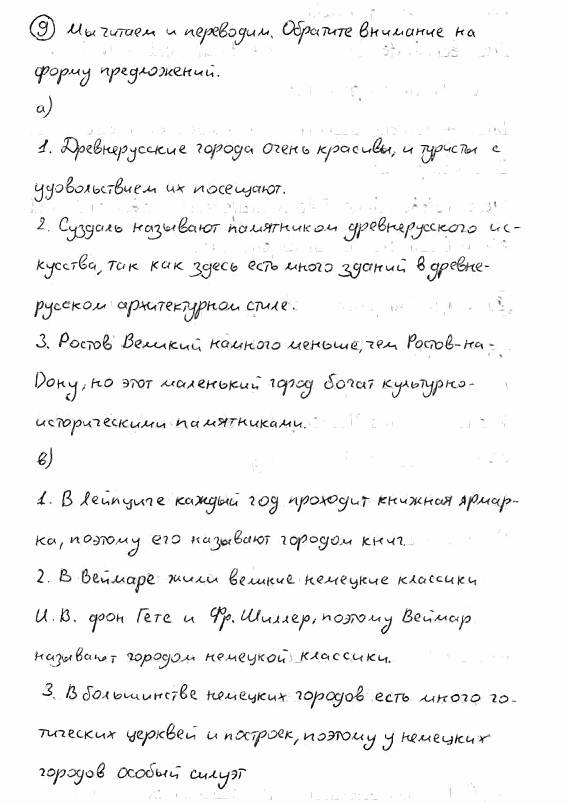 9 Мы читаем и переводим. Обратите внимание на
форму предложений.
а)
1. Древнерусские города очень красивы, и туристы с
удовольствием их посещают.
2. Суздаль называют памятником древнерусского ис-
кусства, так как здесь есть много зданий в древне-
русском архитектурном стиле.
3. Ростов Великий намного меньше, чем Ростов-на-
Дону, но этот маленький город богат культурно-
историческими памятниками.
в)
1. В Лейпциге каждый год проходит книжная ярмар-
ка, поэтому его называют городом книг
2. В Веймаре жили великие немецкие классики
И.В. фон Гете и Фр. Шиллер, поэтому Веймар
называют городом немецкой классики.
3. В большинстве немецких городов есть много го-
тических церквей и построек, поэтому у немецких
городов особый силуэт